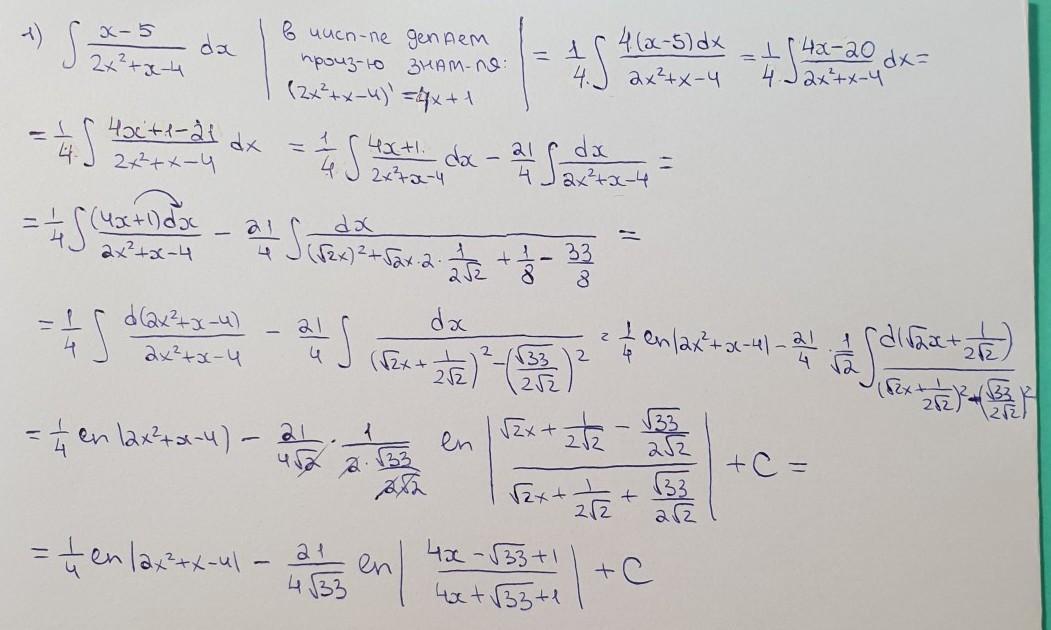 1) ∫ (x-5)/(2x²+x-4) dx | в числ-ле делаем произ-ю знам-ля: (2x²+x-4)' = 4x+1 | = 1/4 ∫ 4(x-5)dx/(2x²+x-4) = 1/4 ∫ (4x-20)/(2x²+x-4) dx =
= 1/4 ∫ (4x+1-21)/(2x²+x-4) dx = 1/4 ∫ (4x+1)/(2x²+x-4) dx - 21/4 ∫ dx/(2x²+x-4) =
= 1/4 ∫ (4x+1)dx/(2x²+x-4) - 21/4 ∫ dx/((√2x)²+√2x·2·1/(2√2) + 1/8 - 33/8) =
= 1/4 ∫ d(2x²+x-4)/(2x²+x-4) - 21/4 ∫ dx/((√2x+1/(2√2))²-(√33/(2√2))²) = 1/4 ln|2x²+x-4| - 21/4 · 1/√2 ∫ d(√2x+1/(2√2))/((√2x+1/(2√2))²-(√33/(2√2))²)
= 1/4 ln|2x²+x-4| - 21/(4√2) · 1/(2·√33/(2√2)) ln |(√2x+1/(2√2)-√33/(2√2))/(√2x+1/(2√2)+√33/(2√2))| + C =
= 1/4 ln|2x²+x-4| - 21/(4√33) ln |(4x-√33+1)/(4x+√33+1)| + C